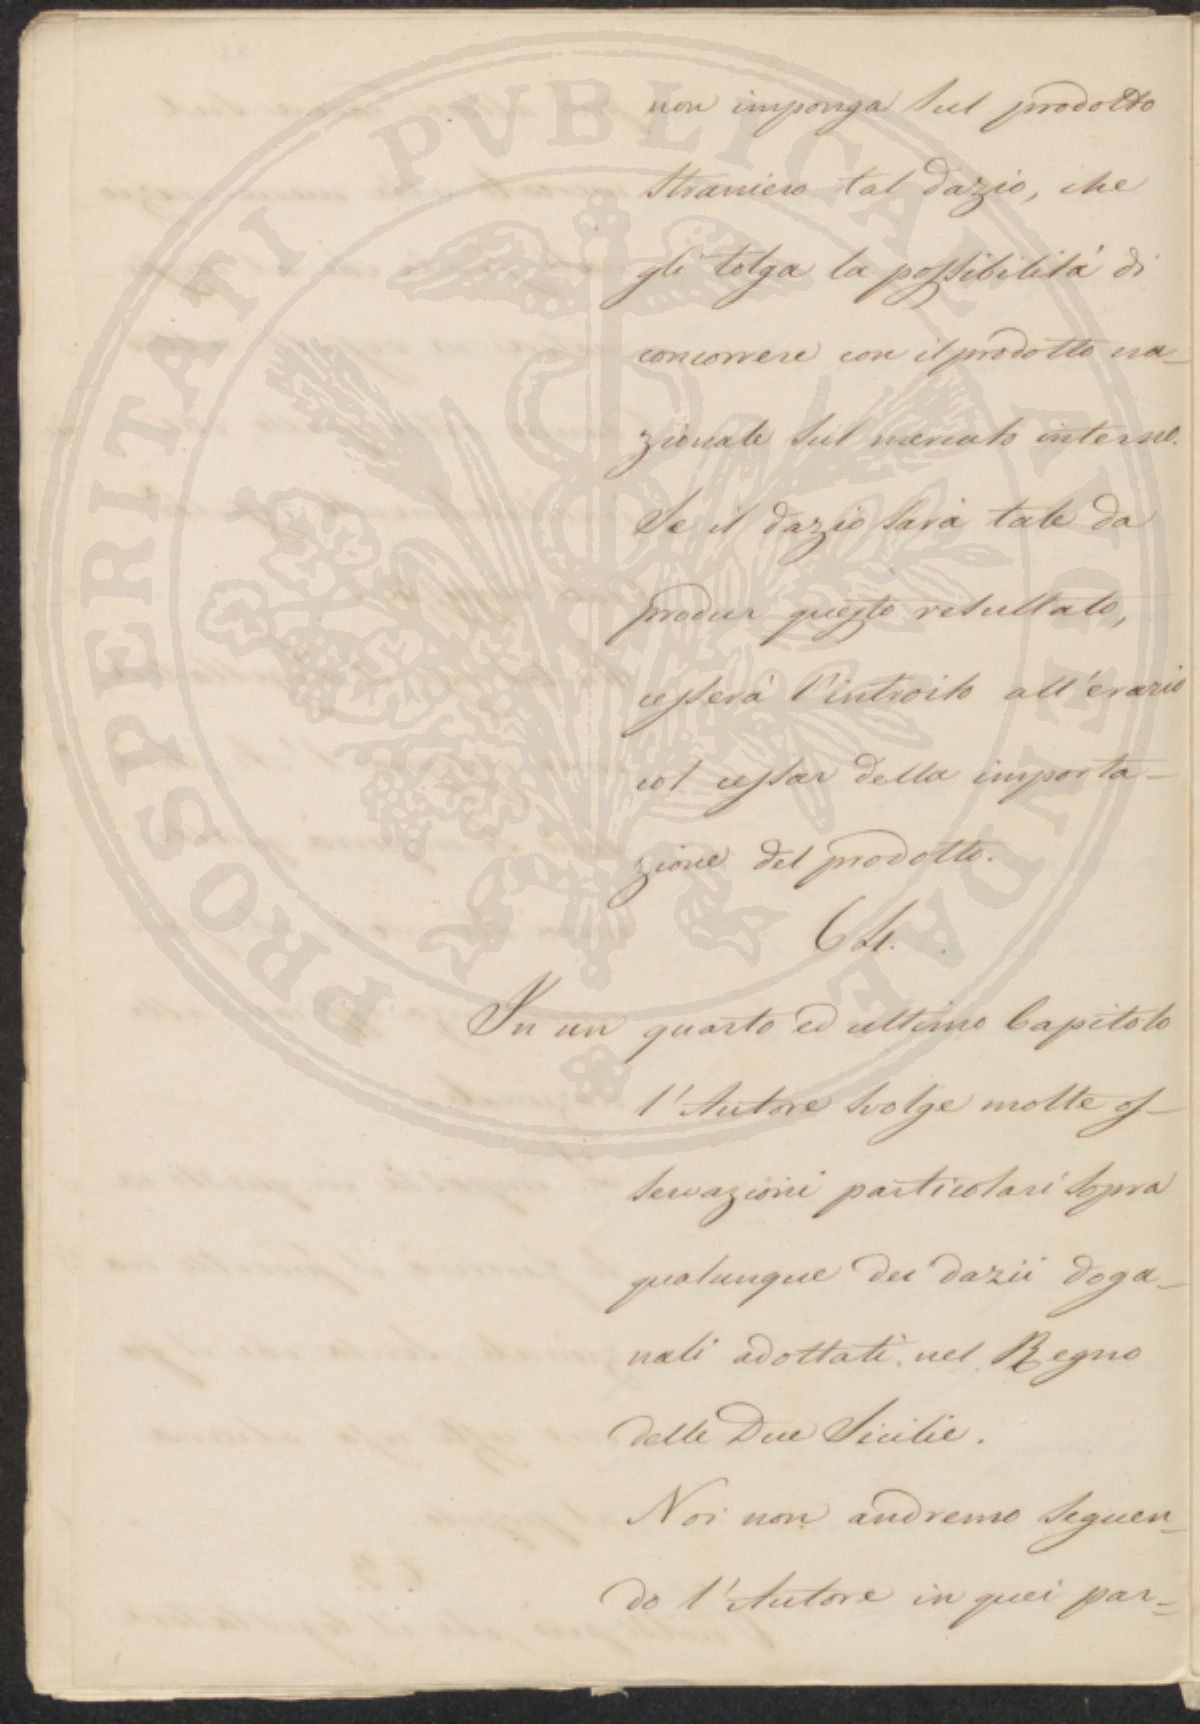 non imponga sul prodotto
straniero tal dazio, che
gli tolga la possibilità di
concorrere con il prodotto na-
zionale sul mercato interno.
Se il dazio sarà tale da
produr questo resultato,
cesserà l'introito all'erario
col cessar della importa-
zione del prodotto.
64.
In un quarto ed ultimo Capitolo
l'Autore svolge molte os-
servazioni particolari sopra
qualunque dei dazii doga-
nali adottati nel Regno
delle Due Sicilie.
Noi non andremo seguen-
do l'Autore in quei par-
PROSPERITATI PVBLICAE AVGENDAE